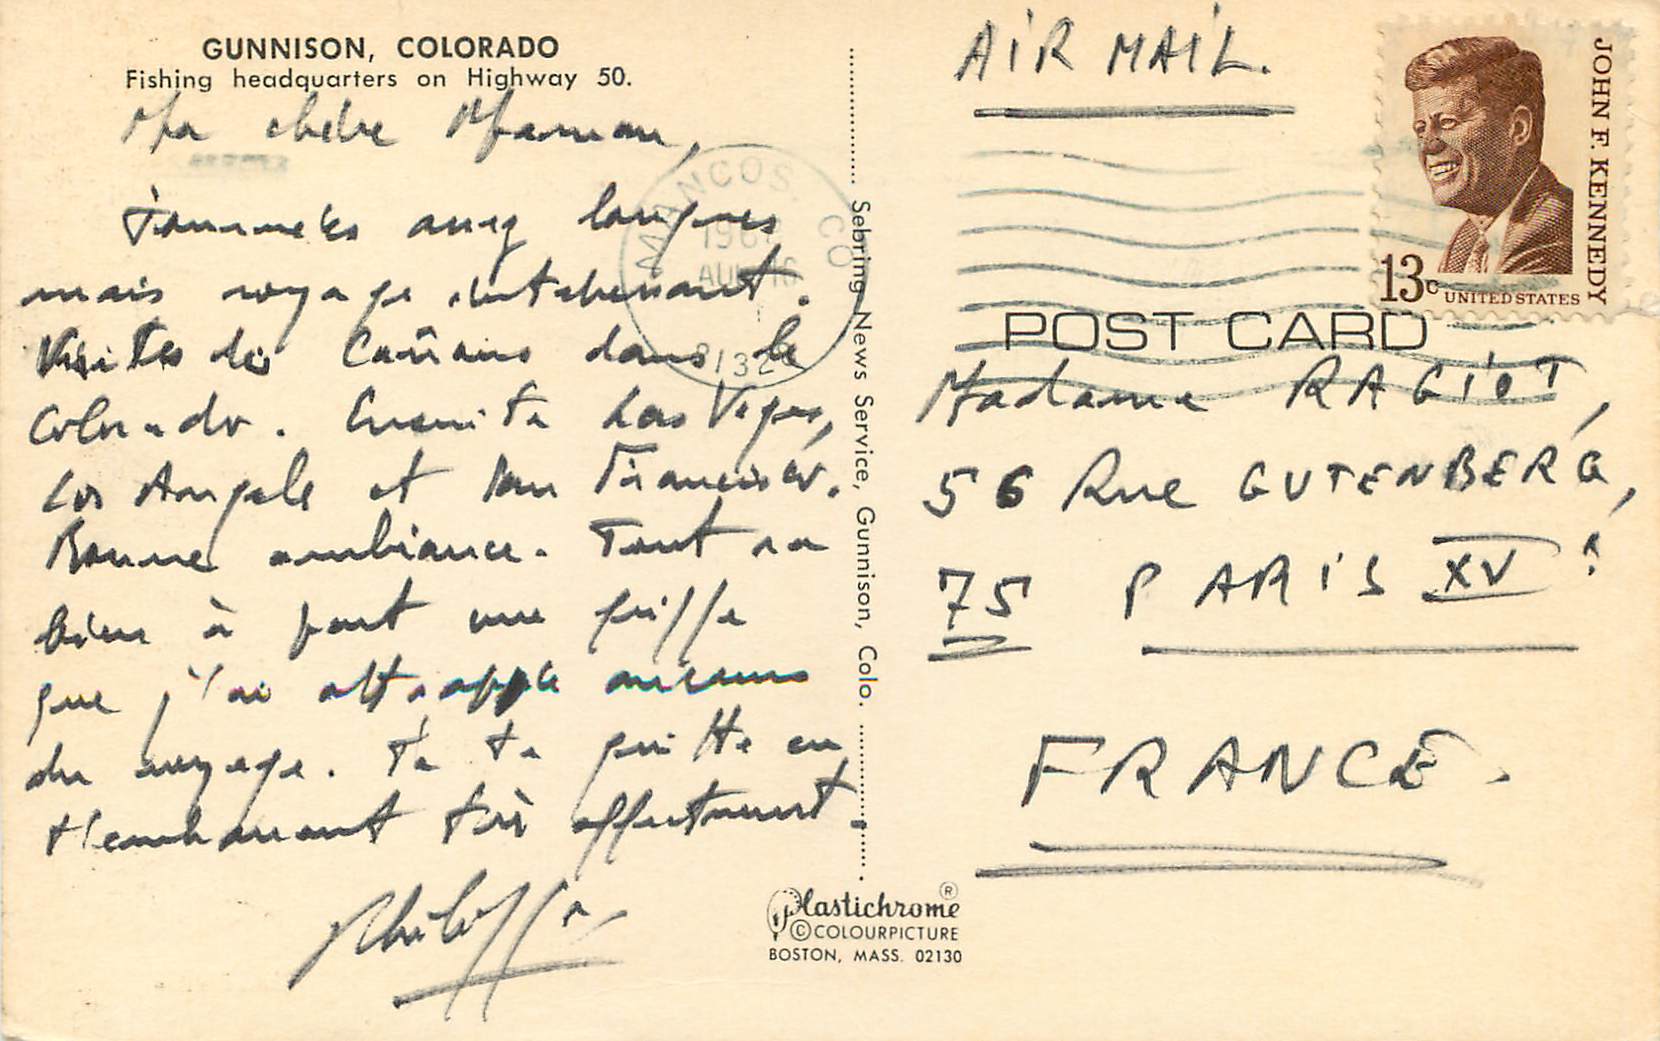 GUNNISON, COLORADO
Fishing headquarters on Highway 50.
Ma chère Maman,
Journées assez longues
mais voyage intéressant.
Visites des Cañons dans le
Colorado. Ensuite Las Vegas,
Los Angeles et San Francisco.
Bonne ambiance. Tout va
bien à part une griffe
que j'ai attrappée
du voyage. Je te quitte en
t'embrassant très affectueusement.
Philippe
MANCOS CO
AUG 16
81328
Sebring News Service, Gunnison, Colo.
Plastichrome ®
© COLOURPICTURE
BOSTON, MASS. 02130
AIR MAIL.
JOHN F. KENNEDY
13c UNITED STATES
POST CARD
Madame RAGIOT,
56 Rue GUTENBERG,
75 PARIS XV e
FRANCE.